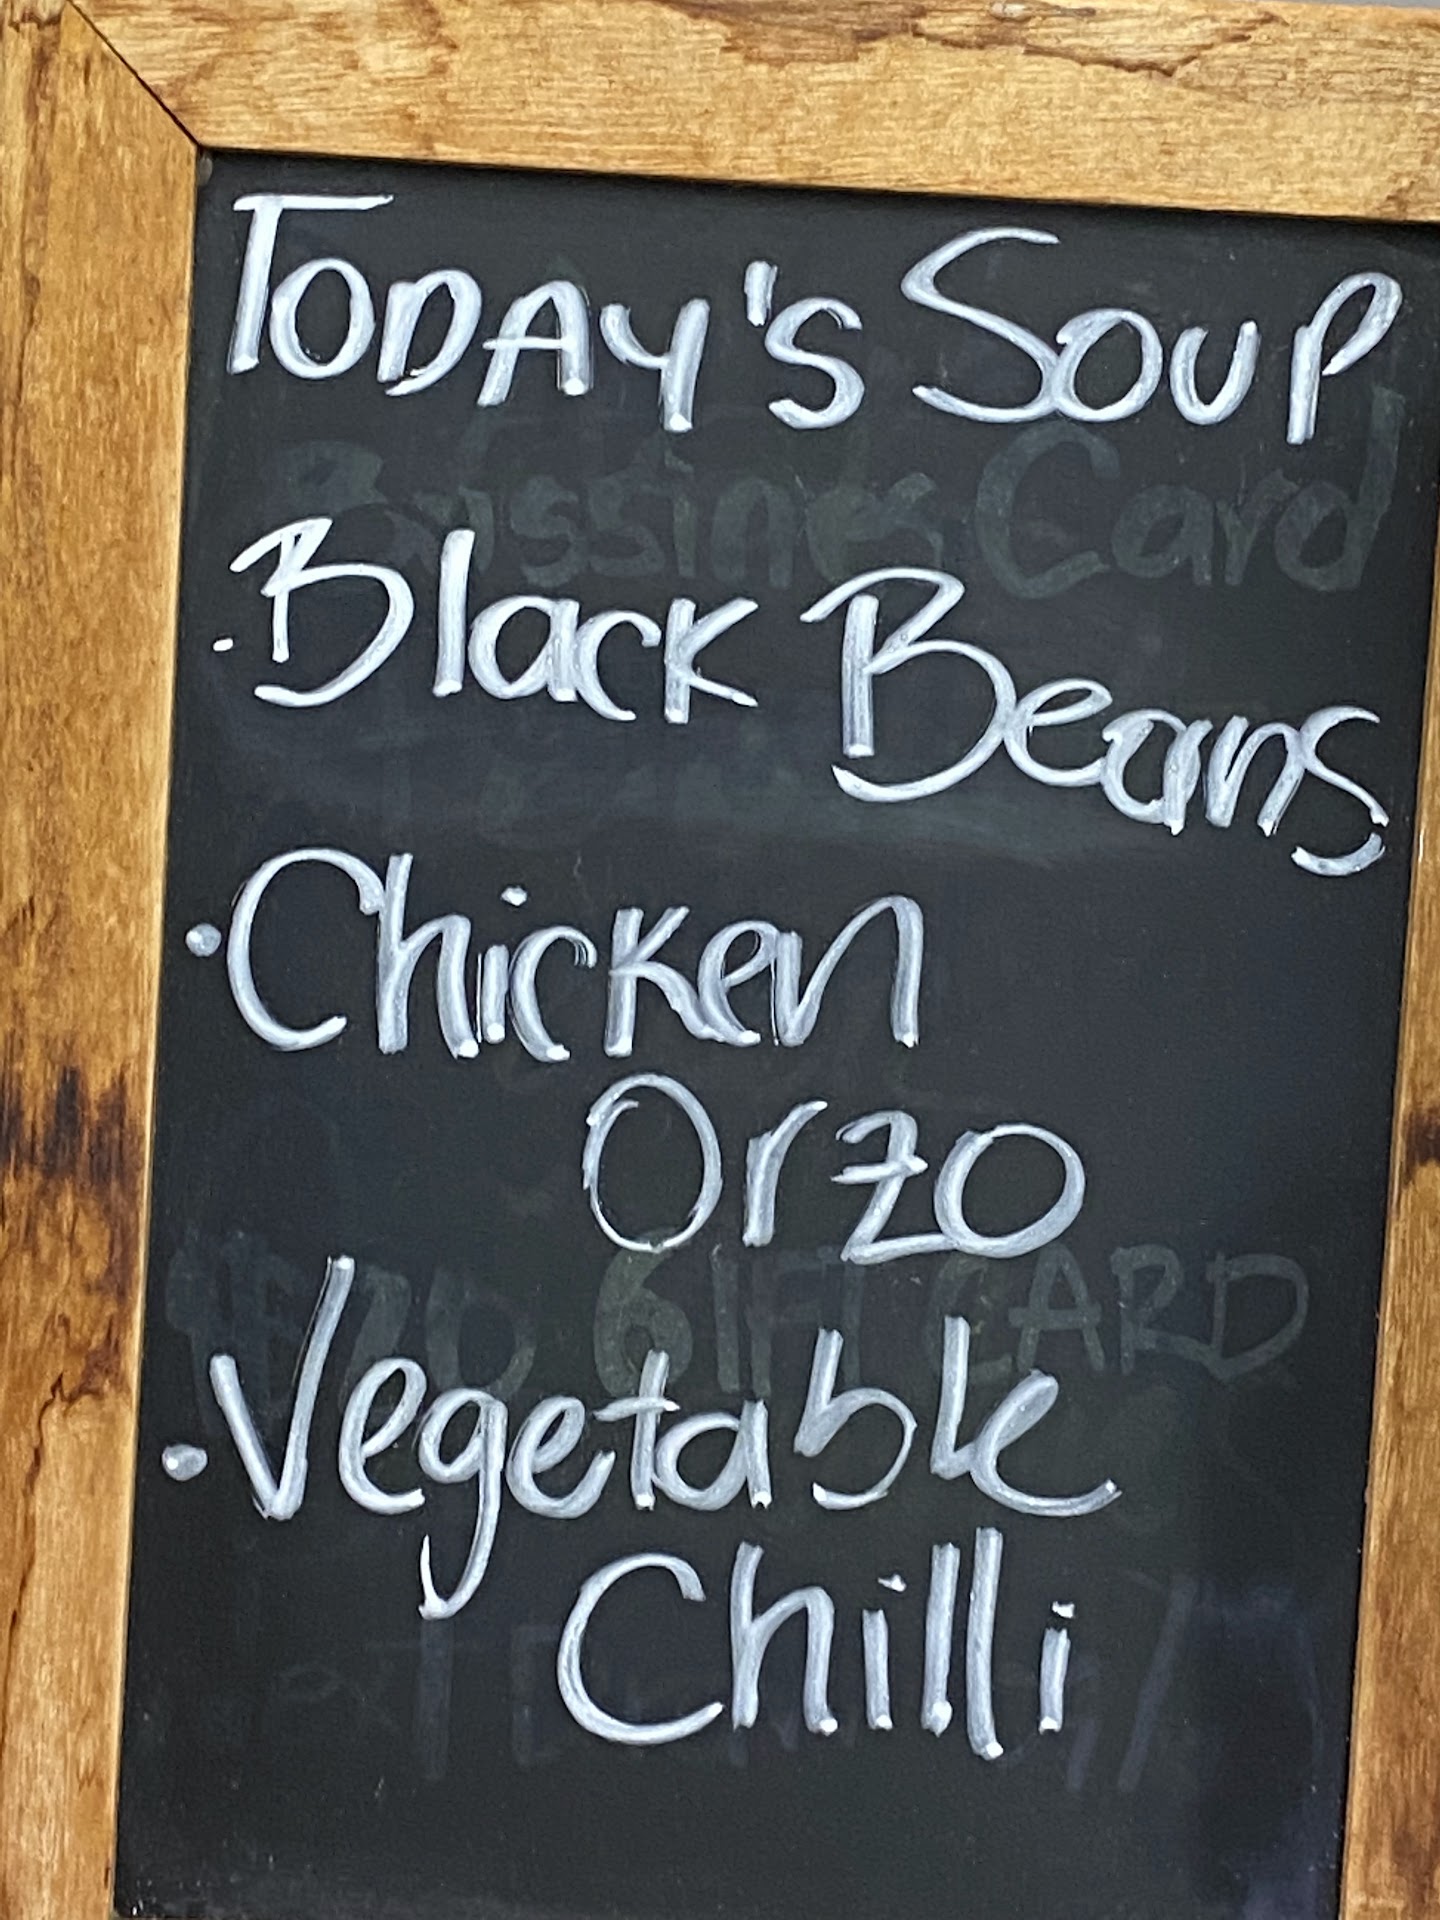 Today's Soup
. Black Beans
• Chicken
Orzo
GIFT CARD
• Vegetable
Chilli